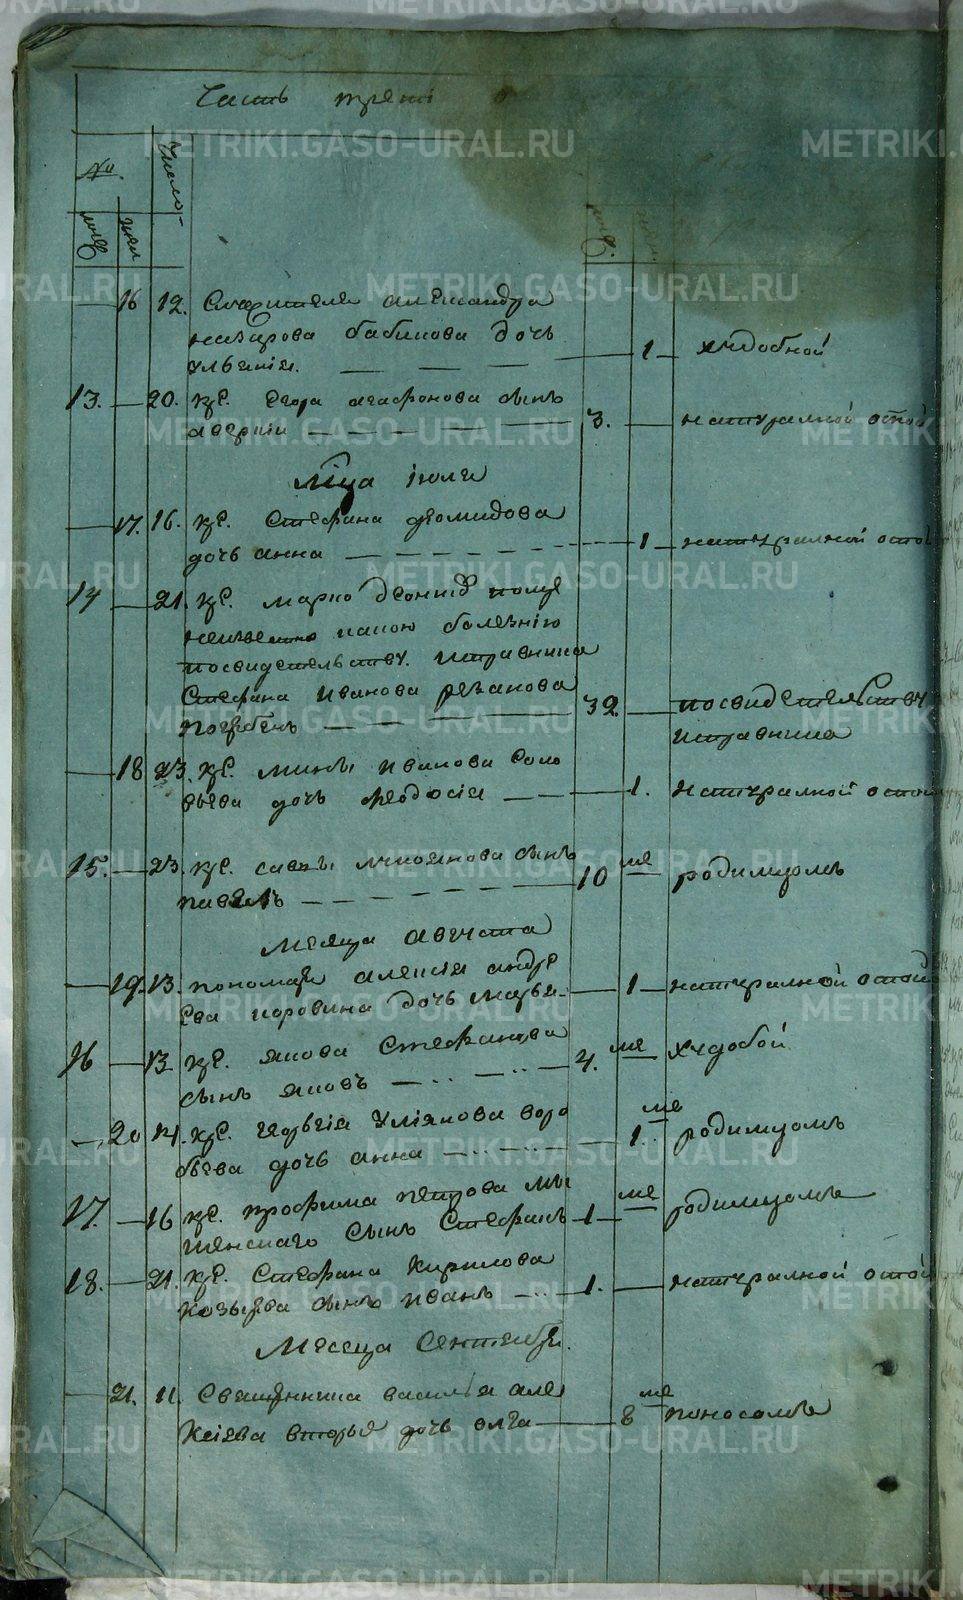 Часть трет
№
Число
муж.
жен
муж.
16 12. Служителя александра
назарова бабинова дочь
1 худобной
13. 20. кр. егора агафонова сынъ
3. натуралной оспой
мца іюля
17. 16. кр. Стефана деомидова
дочь анна 1 натуралной оспой
14 21. кр. марко
болезнію
посвидетелству исправника
Стефана Иванова резанова
погребенъ 32. посвидетелству
исправника
18 23. кр. мины иванова Соло
вьева дочь феодосія 1. натуралной оспой
15. 23. кр. саввы лукоянова сынъ
павелъ 10 ме родимцомъ
Месяца августа
19. 13. пономаря алексія андре
ева коровина дочь марья 1 натуралной оспой
16 13 кр. якова Стефанова
сынъ яковъ 4. ме худобой
20 14. кр. георгія Уліянова воро
бьева дочь анна 1. ме родимцомъ
17. 16 кр. трофима петрова мы
Сынъ Стефанъ 1 ме родимцомъ
18. 21. кр. Стефана Кирилова
сынъ иванъ 1. натуралной оспой
Месеца Сентебр.
21. 11. Священника василья але
ксіева дочь олга 8 ме поносомъ
METRIKI.GASO-URAL.RU